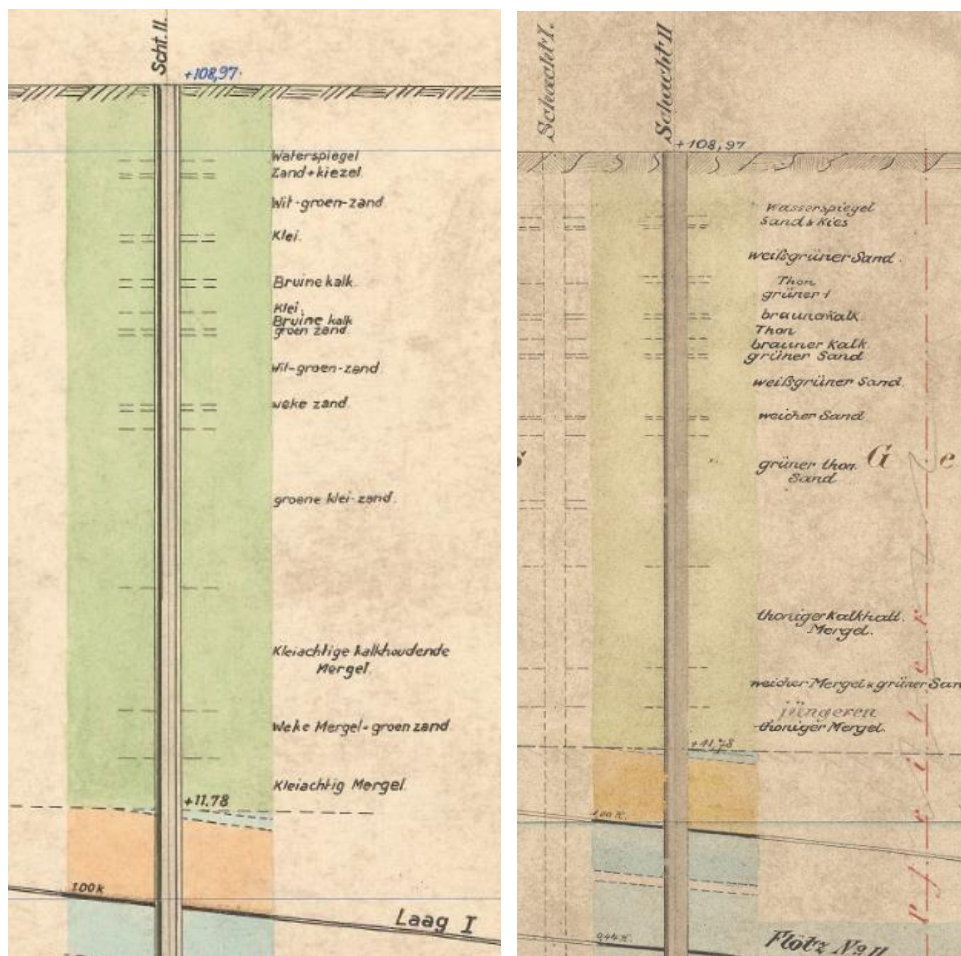 Scht. II.
+108,97.
Waterspiegel
Zand+kiezel.
Wit-groen-zand
Klei.
Bruine kalk.
Klei.
Bruine kalk
groen zand.
Wit-groen-zand.
weke zand.
groene klei-zand.
Kleiachtige kalkhoudende
Mergel.
Weke Mergel-groen zand.
Kleiachtig Mergel.
+11.78
1.00 K
Laag I
Schacht I.
Schacht II
+108,97
Wasserspiegel
Sand & Kies
weißgrüner Sand.
Thon
grüner
brauner Kalk.
Thon
brauner Kalk.
grüner Sand
weißgrüner Sand.
weicher Sand
grüner thon.
Sand
G e
thoniger Kalkhalt.
Mergel.
weicher Mergel & grüner San
jüngeren
thoniger Mergel.
+11,78
1,00 K.
0,44 K.
Flötz No II